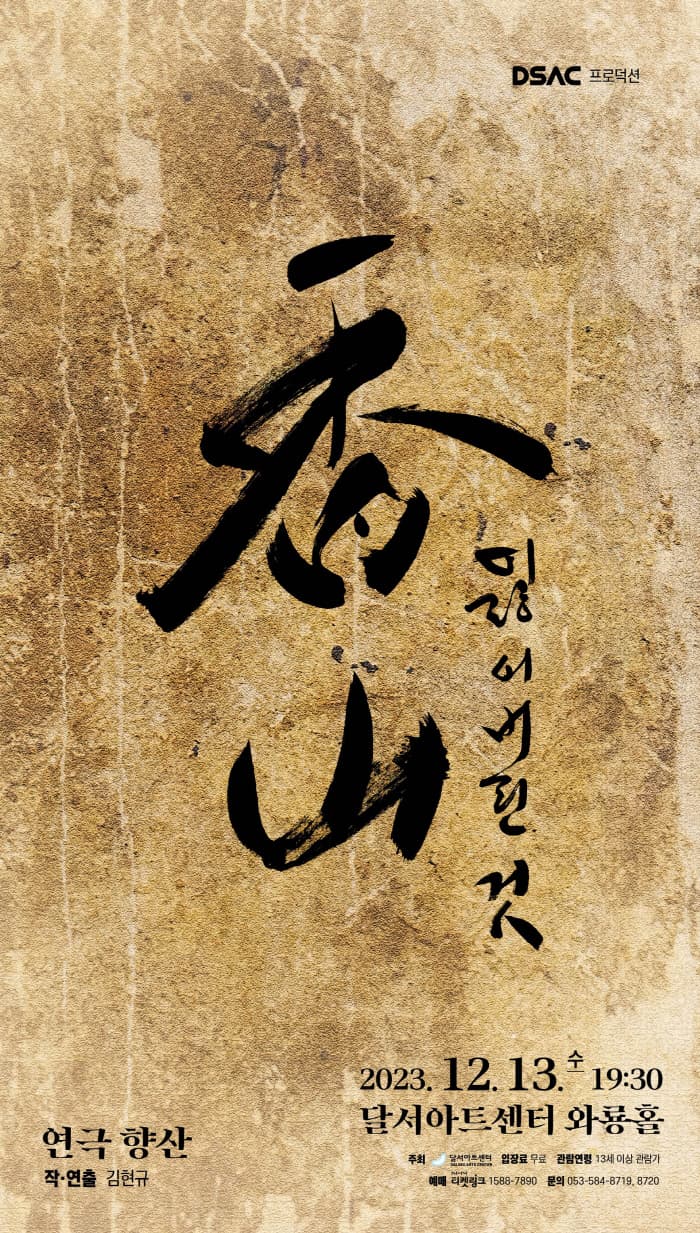 DSAC 프로덕션
香山
잃어버린 것
2023. 12. 13. 수 19:30
달서아트센터 와룡홀
연극 향산
작·연출 김현규
주최 달서아트센터 DALSEO ARTS CENTER 입장료 무료 관람연령 13세 이상 관람가
예매 티켓링크 1588-7890 문의 053-584-8719, 8720